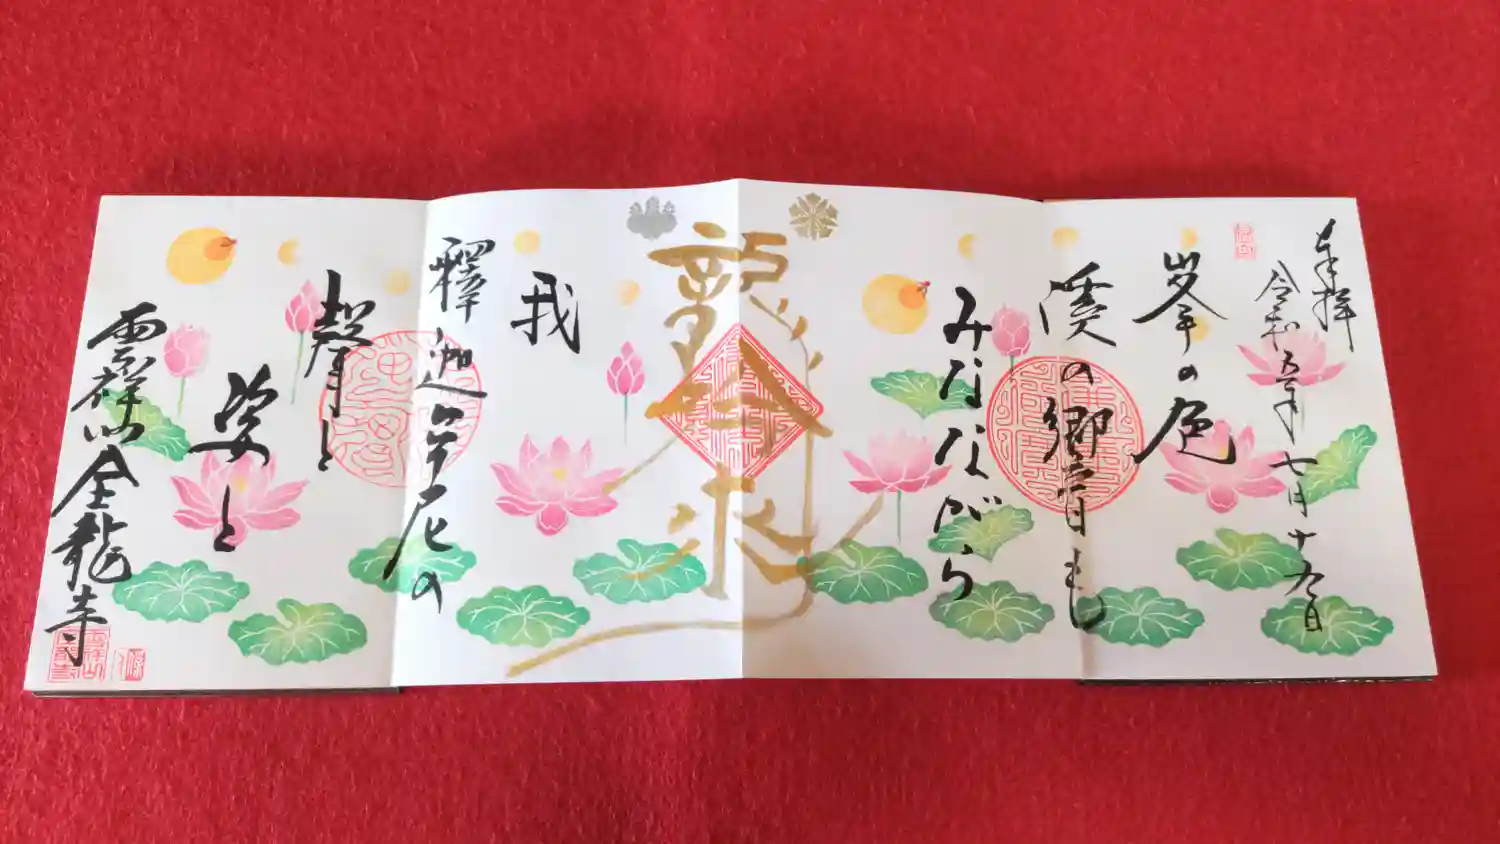 奉拝
令和五年七月十九日
峯の色
溪の郷音も
みなながら
我
釋迦牟尼の
聲と
姿と
雲祥山金龍寺